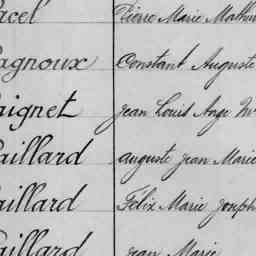 acel Pierre Marie Mathu
agnoux Constant Auguste
aignet Jean Louis Ange M
aillard auguste Jean Marie
aillard Félix Marie Joseph
aillard Jean Marie